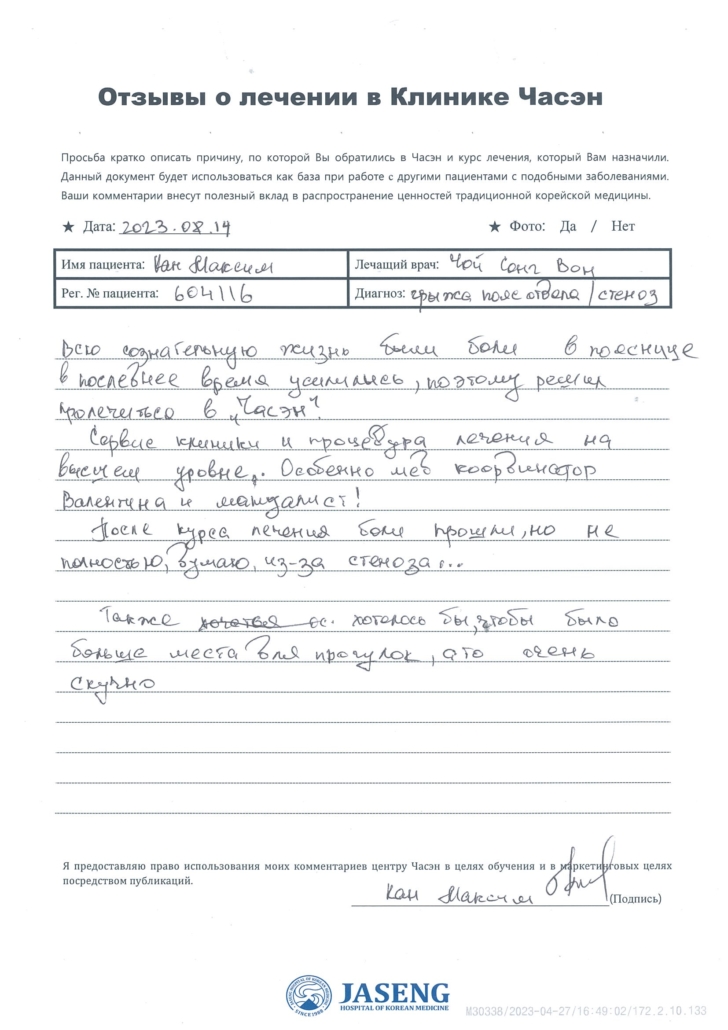 Отзывы о лечении в Клинике Часэн
Просьба кратко описать причину, по которой Вы обратились в Часэн и курс лечения, который Вам назначили.
Данный документ будет использоваться как база при работе с другими пациентами с подобными заболеваниями.
Ваши комментарии внесут полезный вклад в распространение ценностей традиционной корейской медицины.
★ Дата: 2023.08.14 ★ Фото: Да / Нет
Имя пациента: Кан Максим Лечащий врач: Чой Сонг Вон
Рег. № пациента: 604116 Диагноз: грыжа пояс отдела / стеноз
Всю сознательную жизнь были боли в пояснице
в последнее время усилились, поэтому решил
пролечиться в „Часэн".
Сервис клиники и процедура лечения на
высшем уровне. Особенно мед координатор
Валентина и мануалист!
После курса лечения боли прошли, но не
полностью, думаю, из-за стеноза...
Также хочется хотелось бы, чтобы было
больше места для прогулок, а то очень
скучно
Я предоставляю право использования моих комментариев центру Часэн в целях обучения и в маркетинговых целях
посредством публикаций.
Кан Максим (Подпись)
JASENG HOSPITAL OF KOREAN MEDICINE
SINCE 1988
JASENG
HOSPITAL OF KOREAN MEDICINE
M30338/2023-04-27/16:49:02/172.2.10.133